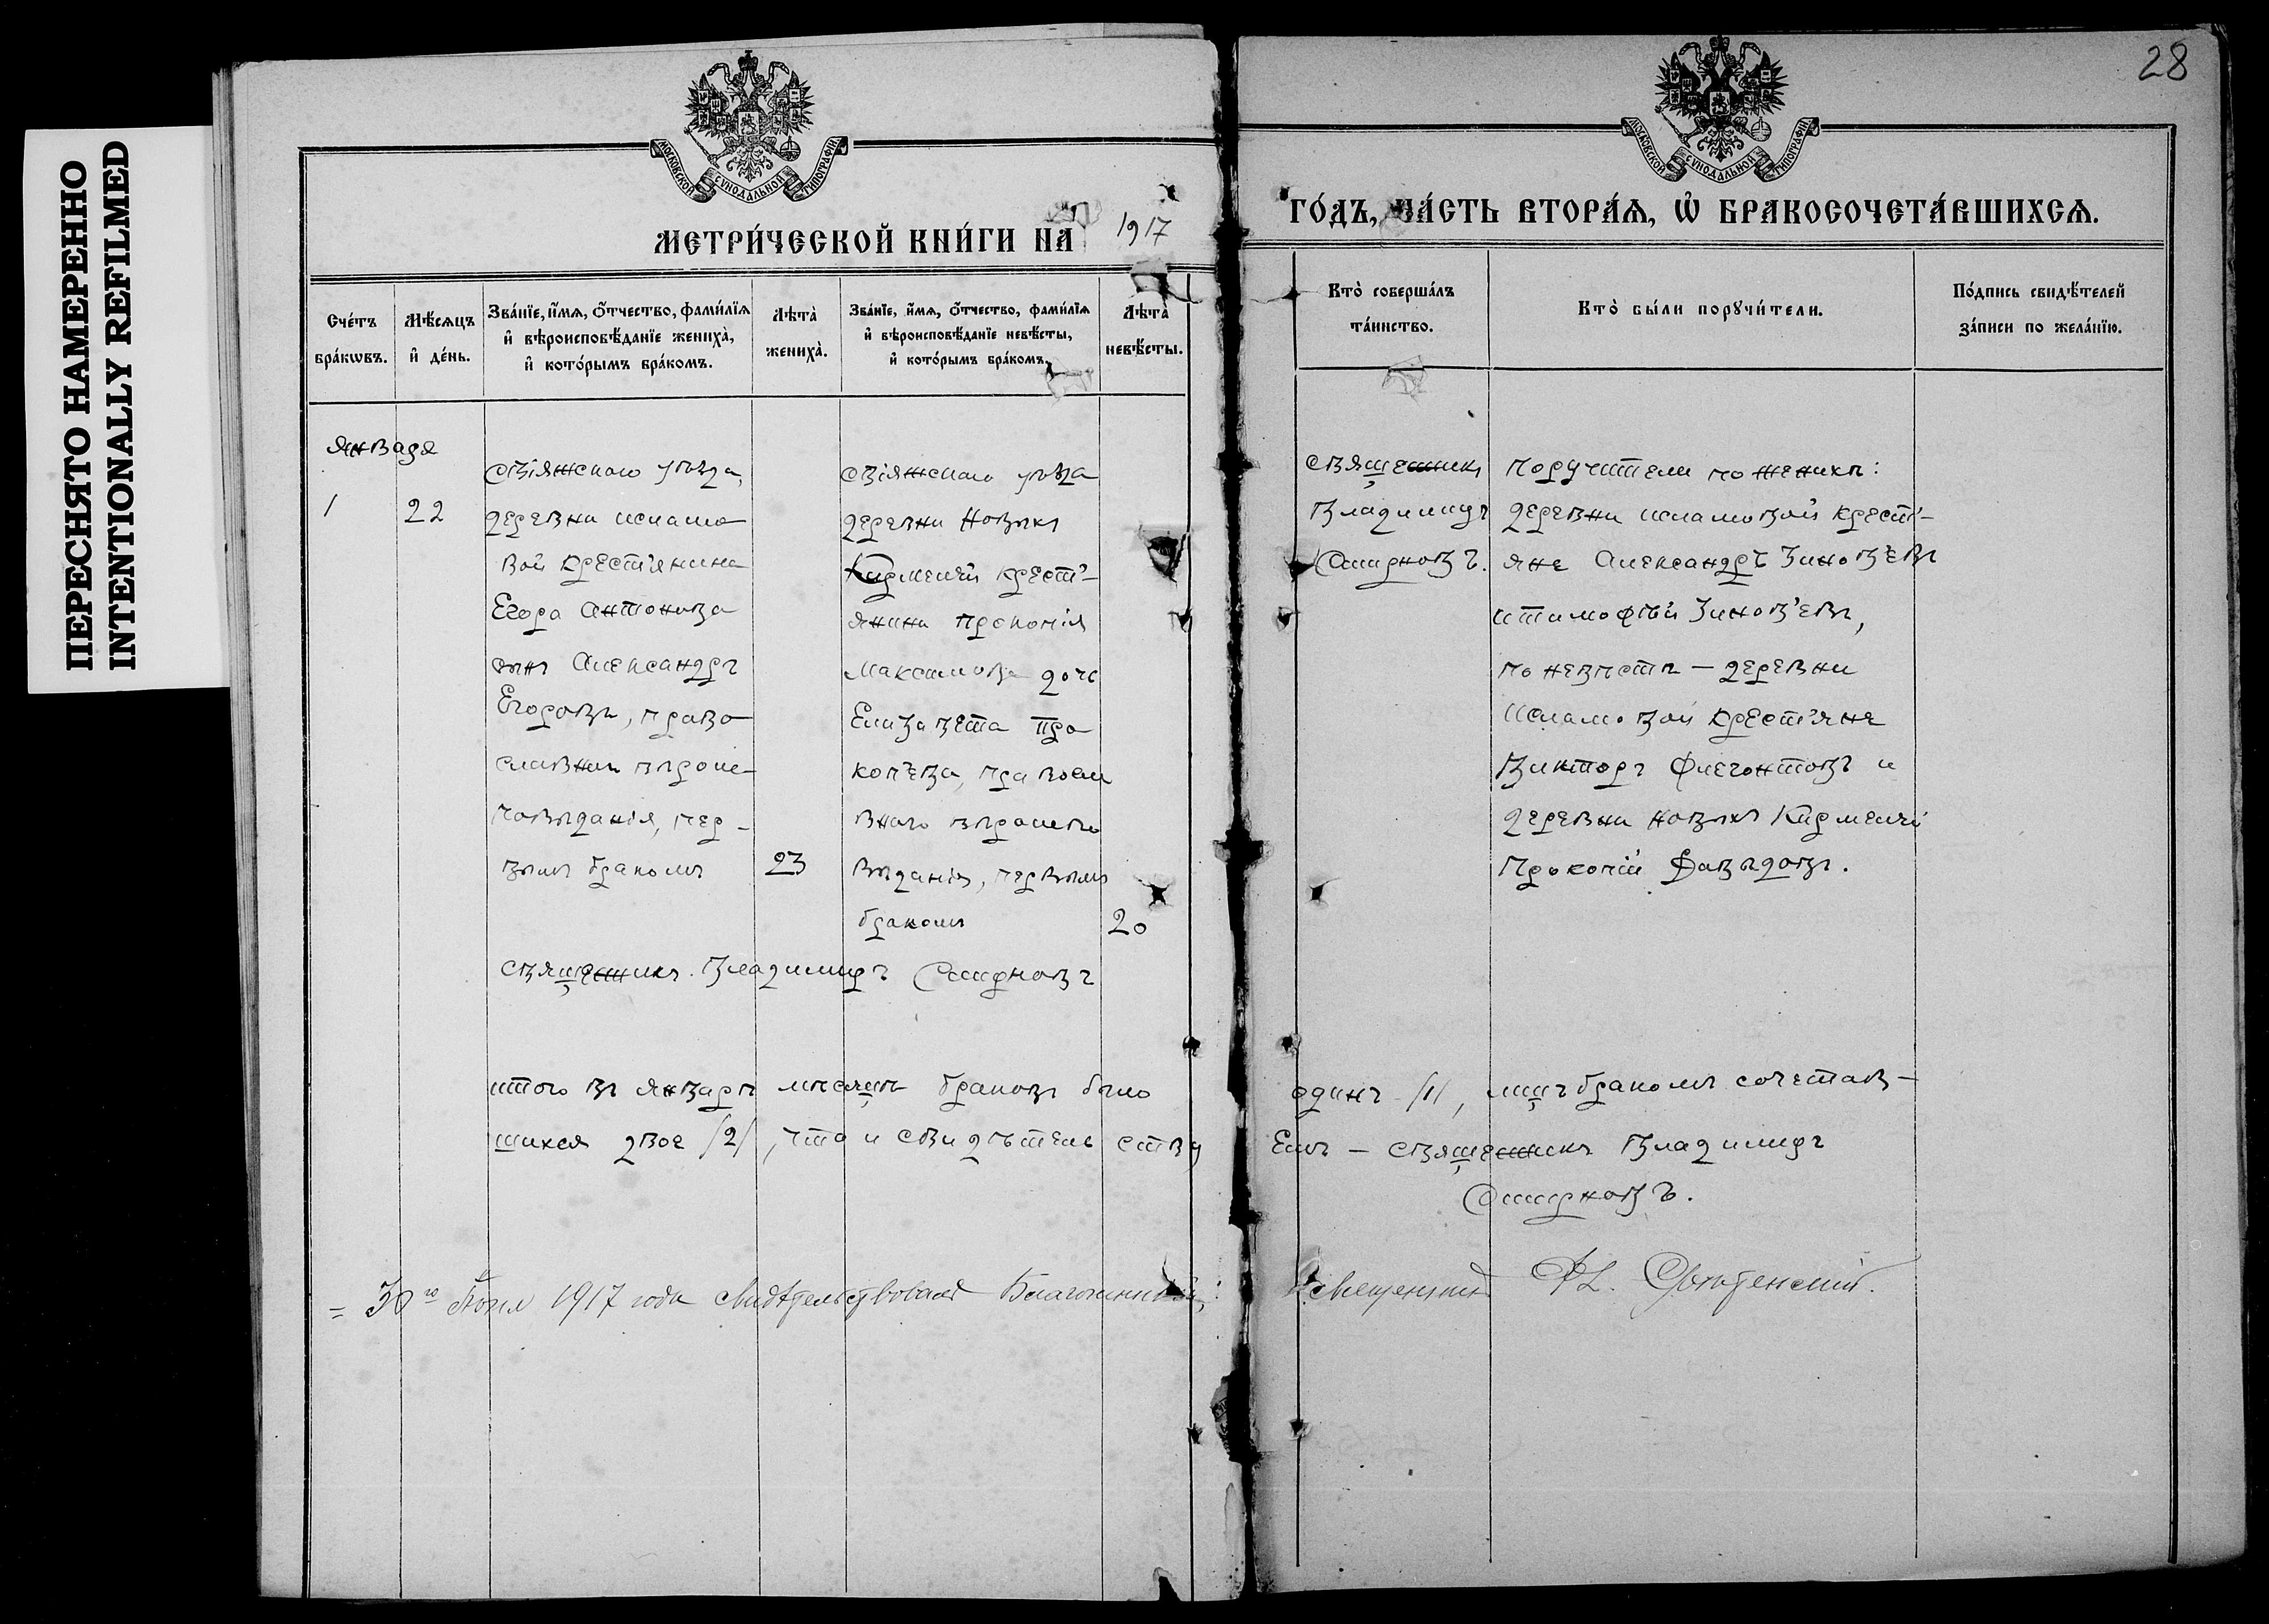 ПЕРЕСНЯТО НАМЕРЕННО
INTENTIONALLY REFILMED
28
МОСКОВСКОЙ СѴНОДАЛЬНОЙ ТИПОГРАФІИ
МОСКОВСКОЙ СѴНОДАЛЬНОЙ ТИПОГРАФІИ
МЕТРИ́ЧЕСКОЙ КНИ́ГИ НА 1917
ГО́ДЪ, ЧА́СТЬ ВТОРА́Ѧ, Ѡ҆ БРАКОСОЧЕТА́ВШИХСѦ.
Сче́тъ
бра́кѡвъ.
Мѣ́сяцъ
и҆ де́нь.
Зва́нїе, и҆́мѧ, ѻ҆́тчество, фами́лїѧ
и҆ вѣроисповѣ́данїе жениха̀,
и҆ кото́рымъ бра́комъ.
Лѣта̀
жениха̀.
Зва́нїе, и҆́мѧ, ѻ҆́тчество, фами́лїѧ
и҆ вѣроисповѣ́данїе невѣ́сты,
и҆ кото́рымъ бра́комъ.
Лѣта̀
невѣ́сты.
Кто̀ соверша́лъ
та́инство.
Кто̀ бы́ли порꙋчи́тели.
По́дпись свидѣ́телей
за́писи по жела́нїю.
Января
1
22
Свіяжскаго уѣзда,
деревни Исламо
вой крестьянина
Егора Антонова
сынъ Александръ
Егоровъ, право
славнаго вѣроис
повѣданія, пер-
вымъ бракомъ
23
Свіяжскаго уѣзда
деревни Новыхъ
Кирмелей крестья-
янина Прокопія
Максимова дочь
Елизавета Про
копьева, правосла
внаго вѣроиспо
вѣданія, первымъ
бракомъ
20
Священникъ
Владимиръ
Смирновъ.
Поручители по женихѣ:
деревни Исламовой кресть-
яне Александръ Зиновьевъ
и Тимофей Зиновьевъ,
по невѣстѣ — деревни
Исламовой крестьяне
Викторъ Флегонтовъ и
деревни Новыхъ Кирмелей
Прокопій Давыдовъ.
Священникъ Владимиръ Смирновъ
Итого въ Январѣ мѣсяцѣ браковъ было один /1/, лицъ бракомъ сочетав-
шихся двое /2/, что и свидѣтельству емъ — Священникъ Владимиръ
Смирновъ.
= 30го 1917 года свидѣтельствовалъ Благочинный, Священникъ